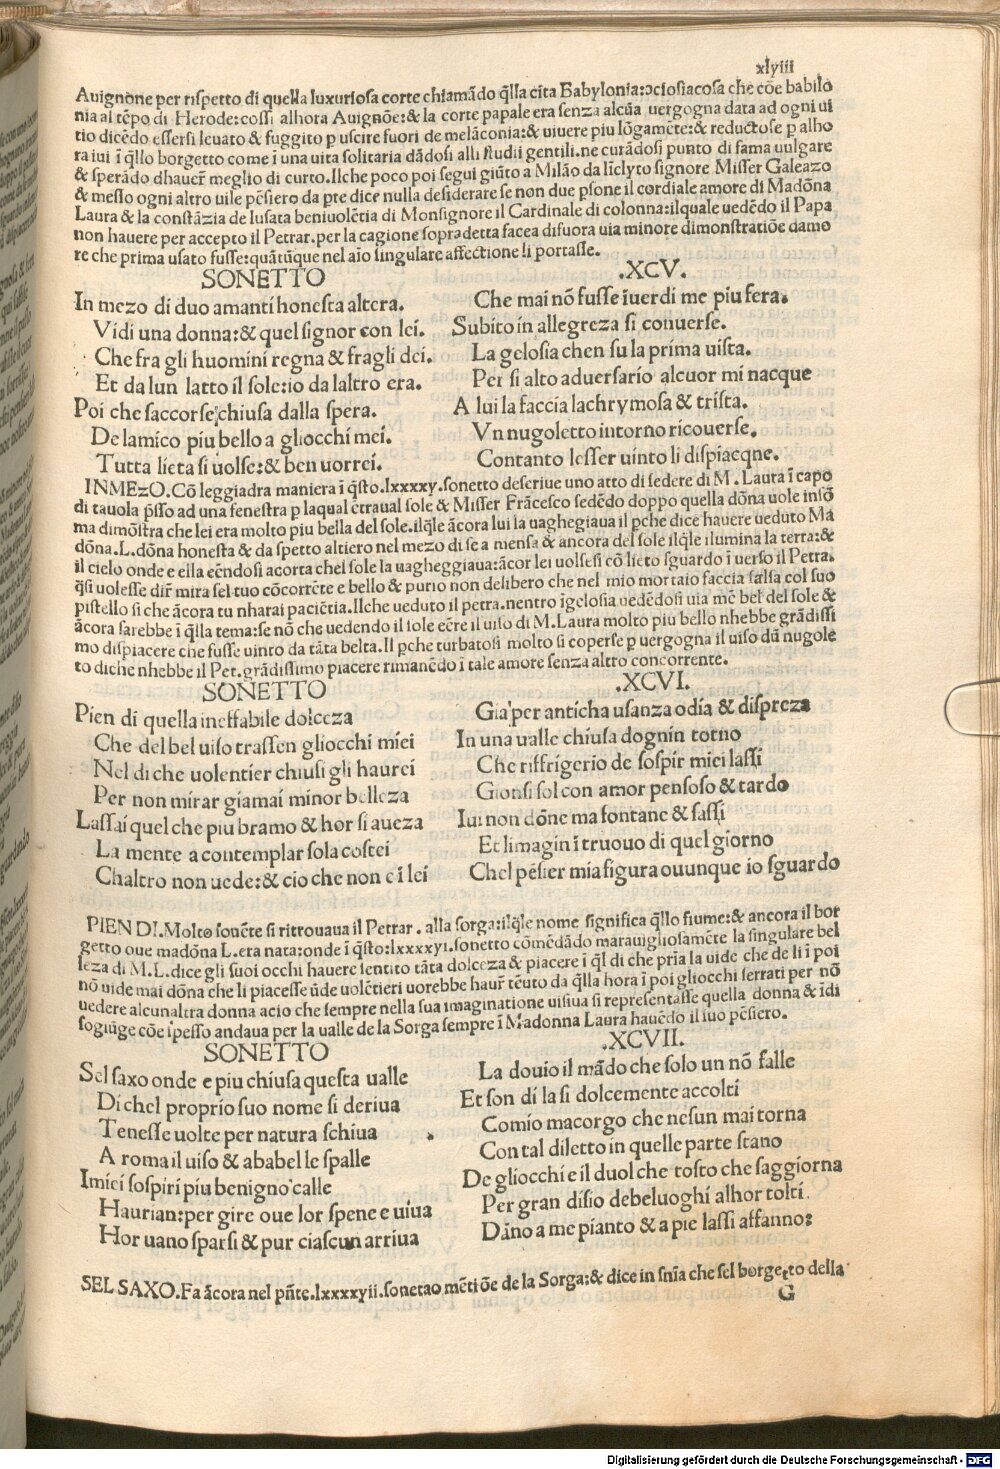 xlviii
Auignone per rispetto di quella luxuriosa corte chiamãdo q̃lla cita Babylonia:ↄciosiacosa che cõe babilo
nia al tẽpo di Herode:cossi alhora Auignõe:& la corte papale era senza alcũa uergogna data ad ogni ui
tio dicẽdo essersi leuato & fuggito p uscire fuori de melãconia:& uiuere piu lõgamẽte:& reductose p alho
ra iui ĩ q̃llo borgetto come ĩ una uita solitaria dãdosi alli studii gentili.ne curãdosi punto di fama uulgare
& sperãdo dhauer̃ meglio di curto.Ilche poco poi segui giũto a Milão da lĩclyto signore Misser Galeazo
& messo ogni altro uile pẽsiero da pte dice nulla desiderare se non due psone il cordiale amore di Madõna
Laura & la constãzia de lusata beniuolẽtia di Monsignore il Cardinale di colonna:ilquale uedẽdo il Papa
non hauere per accepto il Petrar.per la cagione sopradetta facea difuora uia minore dimonstratiõe damo
re che prima usato fusse:quãtũque nel aio singulare affectione li portasse.
SONETTO .XCV.
In mezo di duo amanti honesta altera.
Vidi una donna:& quel signor con lei.
Che fra gli huomini regna & fragli dei.
Et da lun latto il sole:io da laltro era.
Poi che saccorse chiusa dalla spera.
De lamico piu bello a gliocchi mei.
Tutta lieta si uolse:& ben uorrei.
Che mai nõ fusse ĩuerdi me piu fera.
Subito in allegreza si conuerse.
La gelosia chen su la prima uista.
Per si alto aduersario alcuor mi nacque
A lui la faccia lachrymosa & trista.
Vn nugoletto intorno ricouerse.
Contanto lesser uinto li dispiacque.
INMEzO.Cõ leggiadra maniera ĩ q̃sto.lxxxxv.sonetto descriue uno atto di sedere di M.Laura ĩ capo
di tauola p̃sso ad una fenestra p laqual ẽtraual sole & Misser Frãcesco sedẽdo doppo quella dõna uole insõ
ma dimõstra che lei era molto piu bella del sole.ilq̃le ãcora lui la uaghegiaua il pche dice hauere ueduto Ma
dõna.L.dõna honesta & da spetto altiero nel mezo di se a mensa & ancora del sole ilq̃le ilumina la terra:&
il cielo onde e ella eẽndosi acorta chel sole la uagheggiaua:ãcor lei uolsesi cõ lieto sguardo ĩ uerso il Petra.
q̃si uolesse dir̃ mira sel tuo cõcorrẽte e bello & purio non delibero che nel mio mortaio faccia salsa col suo
pistello si che ãcora tu nharai paciẽtia.Ilche ueduto il petra.nentro ĩgelosia uedẽdosi uia mẽ bel del sole &
ãcora sarebbe ĩ q̃lla tema:se nõ che uedendo il sole eẽre il uiso di M.Laura molto piu bello nhebbe grãdissi
mo dispiacere che fusse uinto da tãta belta.Il pche turbatosi molto si coperse p uergogna il uiso dũ nugole
to diche nhebbe il Pet.grãdissimo piacere rimanẽdo ĩ tale amore senza altro concorrente.
SONETTO .XCVI.
Pien di quella ineffabile dolceza
Che del bel uiso trassen gliocchi miei
Nel di che uolentier chiusi gli haurei
Per non mirar giamai minor belleza
Lassai quel che piu bramo & hor si aueza
La mente a contemplar sola costei
Chaltro non uede:& cio che non e ĩ lei
Gia per anticha usanza odia & dispreza
In una ualle chiusa dognin torno
Che riffrigerio de sospir miei lassi
Gionsi sol con amor pensoso & tardo
Iui non dõne ma fontane & sassi
Et limagin ĩ truouo di quel giorno
Chel pẽsier mia figura ouunque io sguardo
PIEN DI.Molto souẽte si ritrouaua il Petrar.alla sorga:ilq̃le nome significa q̃llo fiume:& ancora il bor
getto oue madõna L.era nata:onde ĩ q̃sto:lxxxxvi.sonetto cõmẽdãdo marauigliosamẽte la singulare bel
leza di M.L.dice gli suoi occhi hauere sentito tãta dolceza & piacere ĩ q̃l di che pria la uide che de li ĩ poi
nõ uide mai dõna che li piacesse ũde uolẽtieri uorebbe haur̃ tẽuto da q̃lla hora ĩ poi gliocchi serrati per nõ
uedere alcunaltra donna acio che sempre nella sua imaginatione uisiua si representasse quella donna & ĩdi
sogiũge cõe spesso andaua per la ualle de la Sorga sempre ĩ Madonna Laura hauẽdo il suo pẽsiero.
SONETTO .XCVII.
Sel saxo onde e piu chiusa questa ualle
Di chel proprio suo nome si deriua
Tenesse uolte per natura schiua
A roma il uiso & ababel le spalle
Imiei sospiri piu benigno calle
Haurian:per gire oue lor spene e uiua
Hor uano sparsi & pur ciascun arriua
La douio il mãdo che solo un nõ falle
Et son di la si dolcemente accolti
Comio macorgo che nesun mai torna
Con tal diletto in quelle parte stano
De gliocchi e il duol che tosto che saggiorna
Per gran disio debeluoghi alhor tolti
Dãno a me pianto & a pie lassi affanno:
SEL SAXO.Fa ãcora nel pñte.lxxxxvii.sonetao mẽtiõe de la Sorga:& dice in sñia che sel borgetto della
G
Digitalisierung gefördert durch die Deutsche Forschungsgemeinschaft - DFG